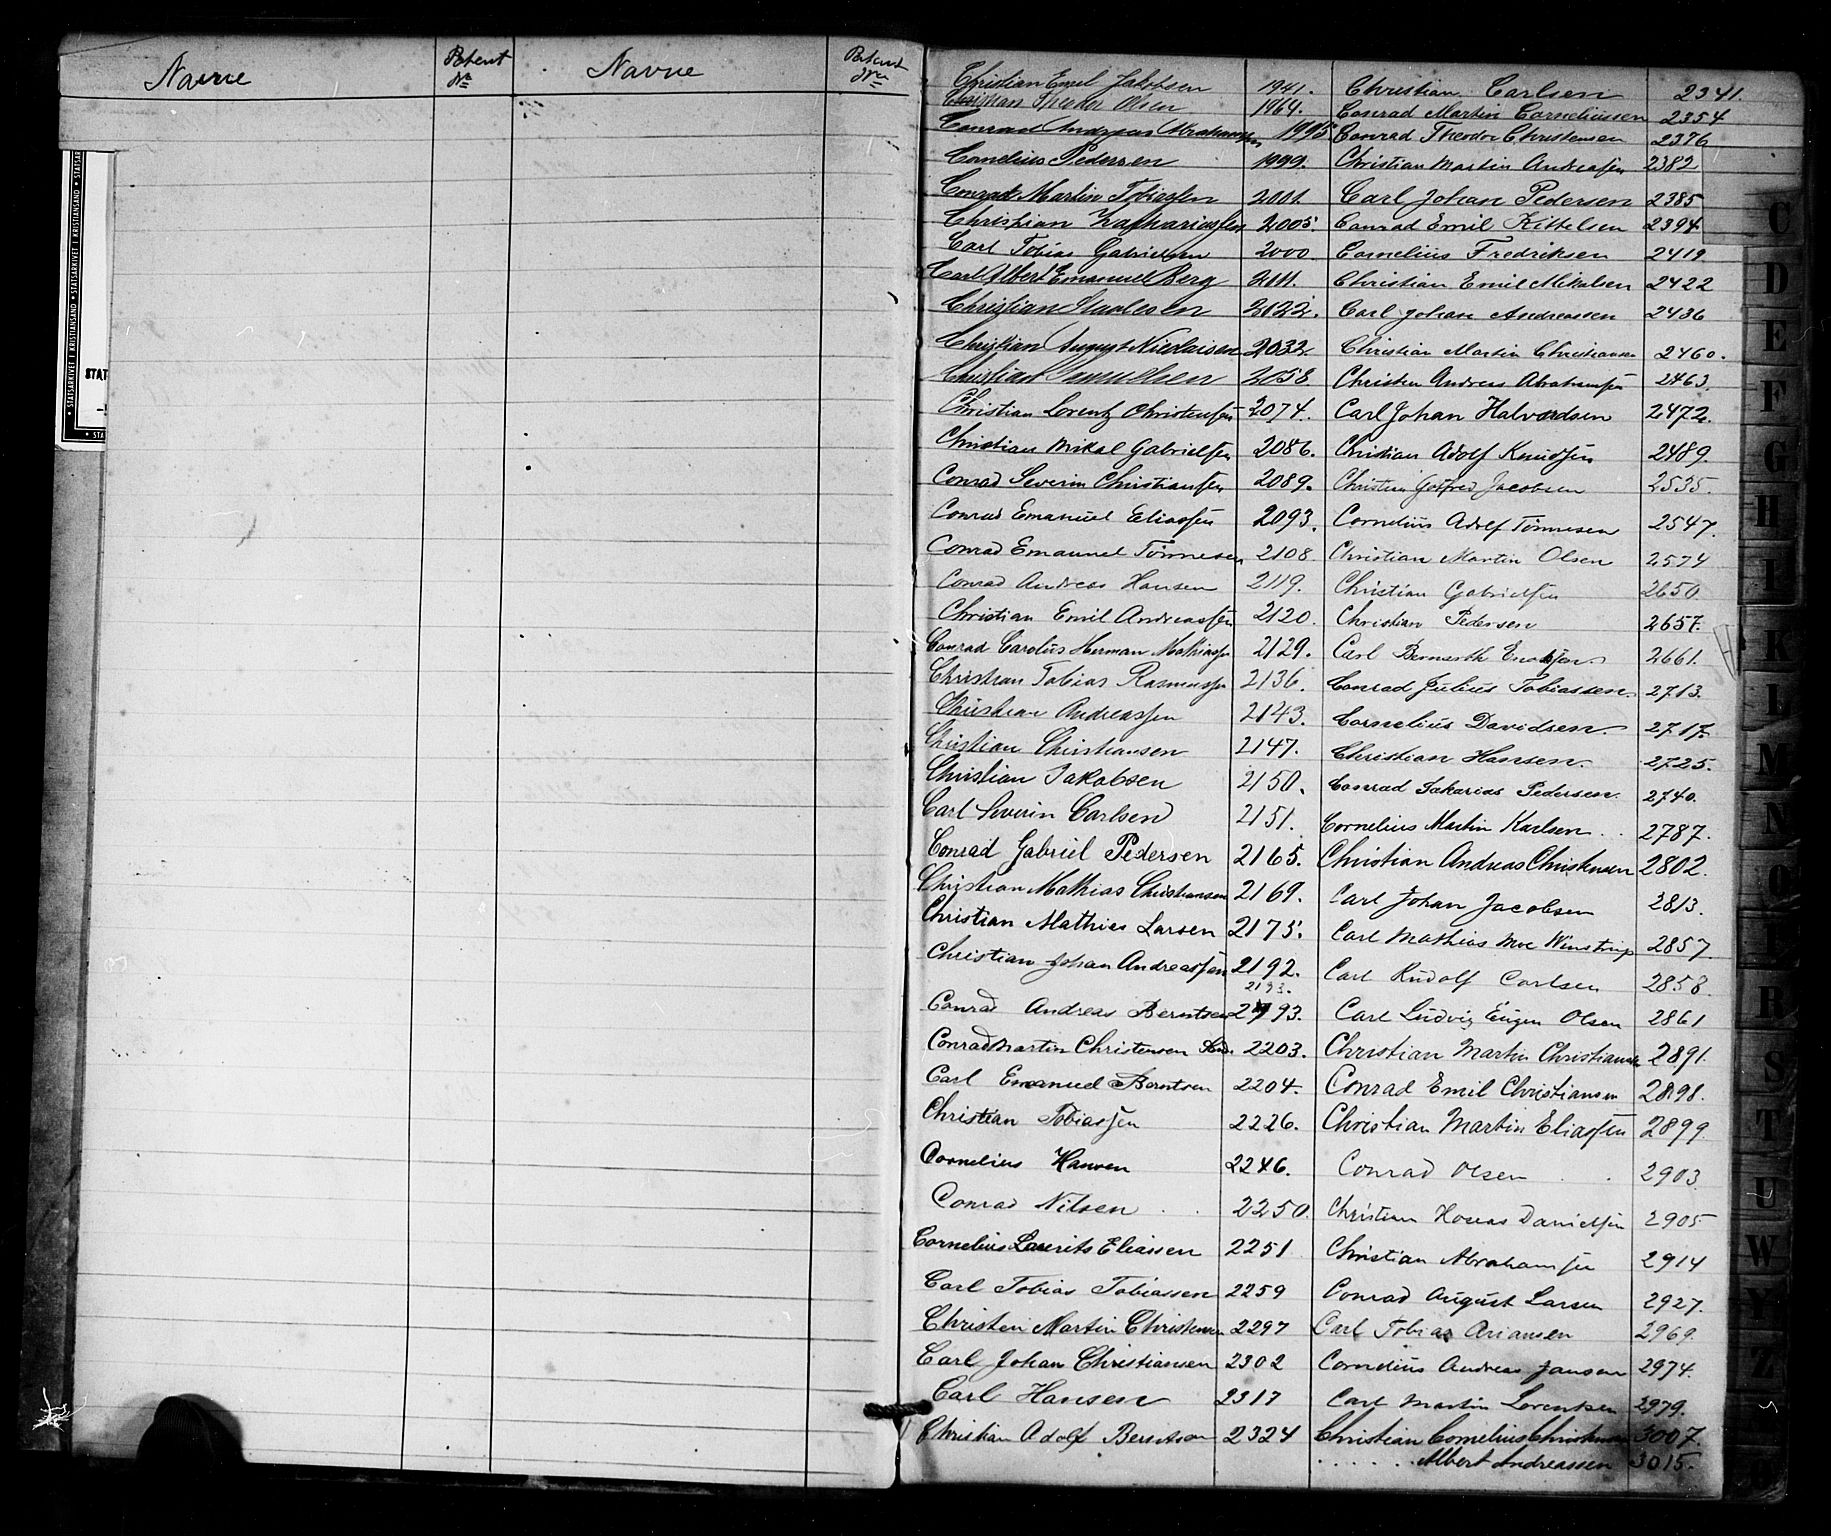 Navne
Patent
Nr
Navne
Patent
Nr
STATSARKIVET I KRISTIANSAND
STAT
Christian Emil Jakobsen 1941.
Christian Theodor Olsen 1964.
Conrad Andreas Abrahamsen 1995
Cornelius Pedersen 1999.
Conrad Martin Tobiassen 2001.
Christian Zachariassen 2005.
Carl Tobias Gabrielsen 2000
Carl Albert Emanuel Berg 2011.
Christian 2022.
Christian August Nicolaisen 2032.
Christian Samuelsen 2058
Christian Lorentz Christensen 2074.
Christian Mikal Gabrielsen 2086.
Conrad Severin Christiansen 2089.
Conrad Emanuel Eliassen 2093.
Conrad Emanuel Tönnesen 2108
Conrad Andreas Hansen 2119.
Christian Emil Andreassen 2120.
Conrad Carolius Herman Mathiassen 2129.
Christian Tobias Rasmussen 2136.
Christian Andreassen 2143.
Christian Christiansen 2147.
Christian Jakobsen 2150.
Carl Severin Carlsen 2151.
Conrad Gabriel Pedersen 2165.
Christian Mathias Christiansen 2169.
Christian Mathias Larsen 2175.
Christian Johan Andreassen 2192.
2193.
Conrad Andreas Berntsen 2193.
Conrad Martin Christensen 2203.
Carl Emanuel Berntsen 2204.
Christian Tobiassen 2226.
Cornelius Hansen 2246.
Conrad Nilsen 2250.
Cornelius Laurits Eliassen 2251
Carl Tobias Tobiassen 2259
Christen Martin Christensen 2297
Carl Johan Christiansen 2302
Carl Hansen 2317
Christian Adolf Berntson 2324
Christian Carlsen 2341.
Conrad Martin Corneliussen 2354
Conrad Theodor Christensen 2376
Christian Martin Andreassen 2382
Carl Johan Pedersen 2385
Conrad Emil Kittelsen 2394
Cornelius Fredriksen 2419
Christian Emil Mikalsen 2422
Carl Johan Andreassen 2436
Christian Martin Christiansen 2460.
Christen Andreas Abrahamsen 2463.
Carl Johan Halvordsen 2472.
Christian Adolf Knudsen 2489.
Christian Gotfred Jacobsen 2535.
Cornelius Adolf Tönnesen 2547.
Christian Martin Olsen 2574
Christian Gabrielsen 2650
Christian Pedersen 2657.
Carl Bernerth Enoksen 2661.
Conrad Julius Tobiassen 2713.
Cornelius Davidsen 2717.
Christian Hansen 2725.
Conrad Sakarias Pedersen 2740.
Cornelius Martin Karlsen 2787.
Christian Andreas Christensen 2802.
Carl Johan Jacobsen 2813.
Carl Mathias Moe Winstrup 2857.
Carl Rudolf Carlsen 2858.
Carl Ludvig Eugen Olsen 2861
Christian Martin Christiansen 2891.
Conrad Emil Christiansen 2898.
Christian Martin Eliassen 2899.
Conrad Olsen 2903
Christian Hoseas Danielsen 2905
Christian Abrahamsen 2914
Conrad August Larsen 2927.
Carl Tobias Ariansen 2969.
Cornelius Andreas Jansen 2974.
Carl Martin Lorentsen 2979.
Christian Cornelius Christensen 3007.
. . . . . . Albert Andreassen 3015.
C
D
E
F
G
H
I
K
L
M
N
O
P
R
S
T
U
W
Y
Z
Ø